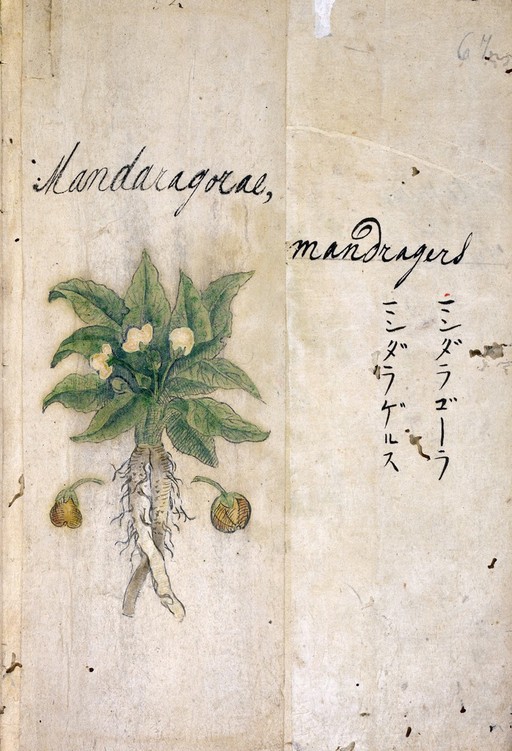 Mandaragorae,
mandragers
ニンダラゴーラ
ニンダラゲルス